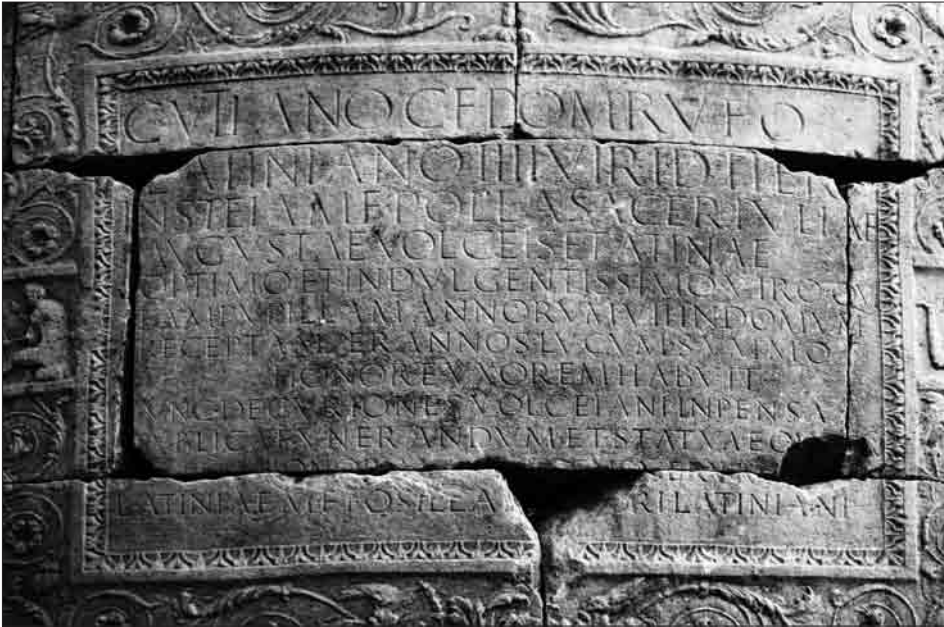 C VTIANO C F POM RVFO
LATINIANO IIII VIR I D ITER
INSTEIA M F POLLA SACER IVLIAE
AVGVSTAE VOLCEIS ET ATINAE
OPTIMO ET INDVLGENTISSIMO VIRO QV
PVPILLAM ANNORVM VII IN DOMVM
RECEPTA PER ANNOS LV CVM SVMMO
HONORE VXOREM HABVIT
DECVRIONES VOLCEIANI INPENSA
PVBLICA FVNERANDVM ET STATVA
LATINIAE M F POSILLA RI LATINIANI